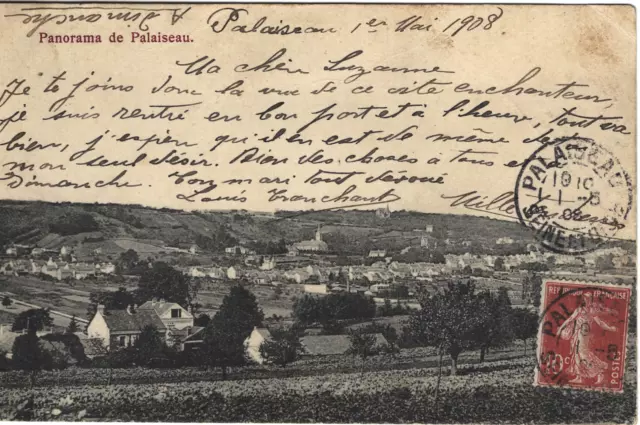 A. Simon édit.
Palaiseau 1er Mai 1908
Panorama de Palaiseau.
Ma chère Suzanne
Je te joins donc la vue de ce site enchanteur,
je suis rentré en bon port et à l'heure, tout va
bien, j'espère qu'il en est de même de toi
mon seul désir. Bien des choses à tous et
Dimanche. Ton mari tout dévoué
Louis Tranchant
Mille
PALAISEAU
SEINE-ET-
REPUBLIQUE
10c
POSTES